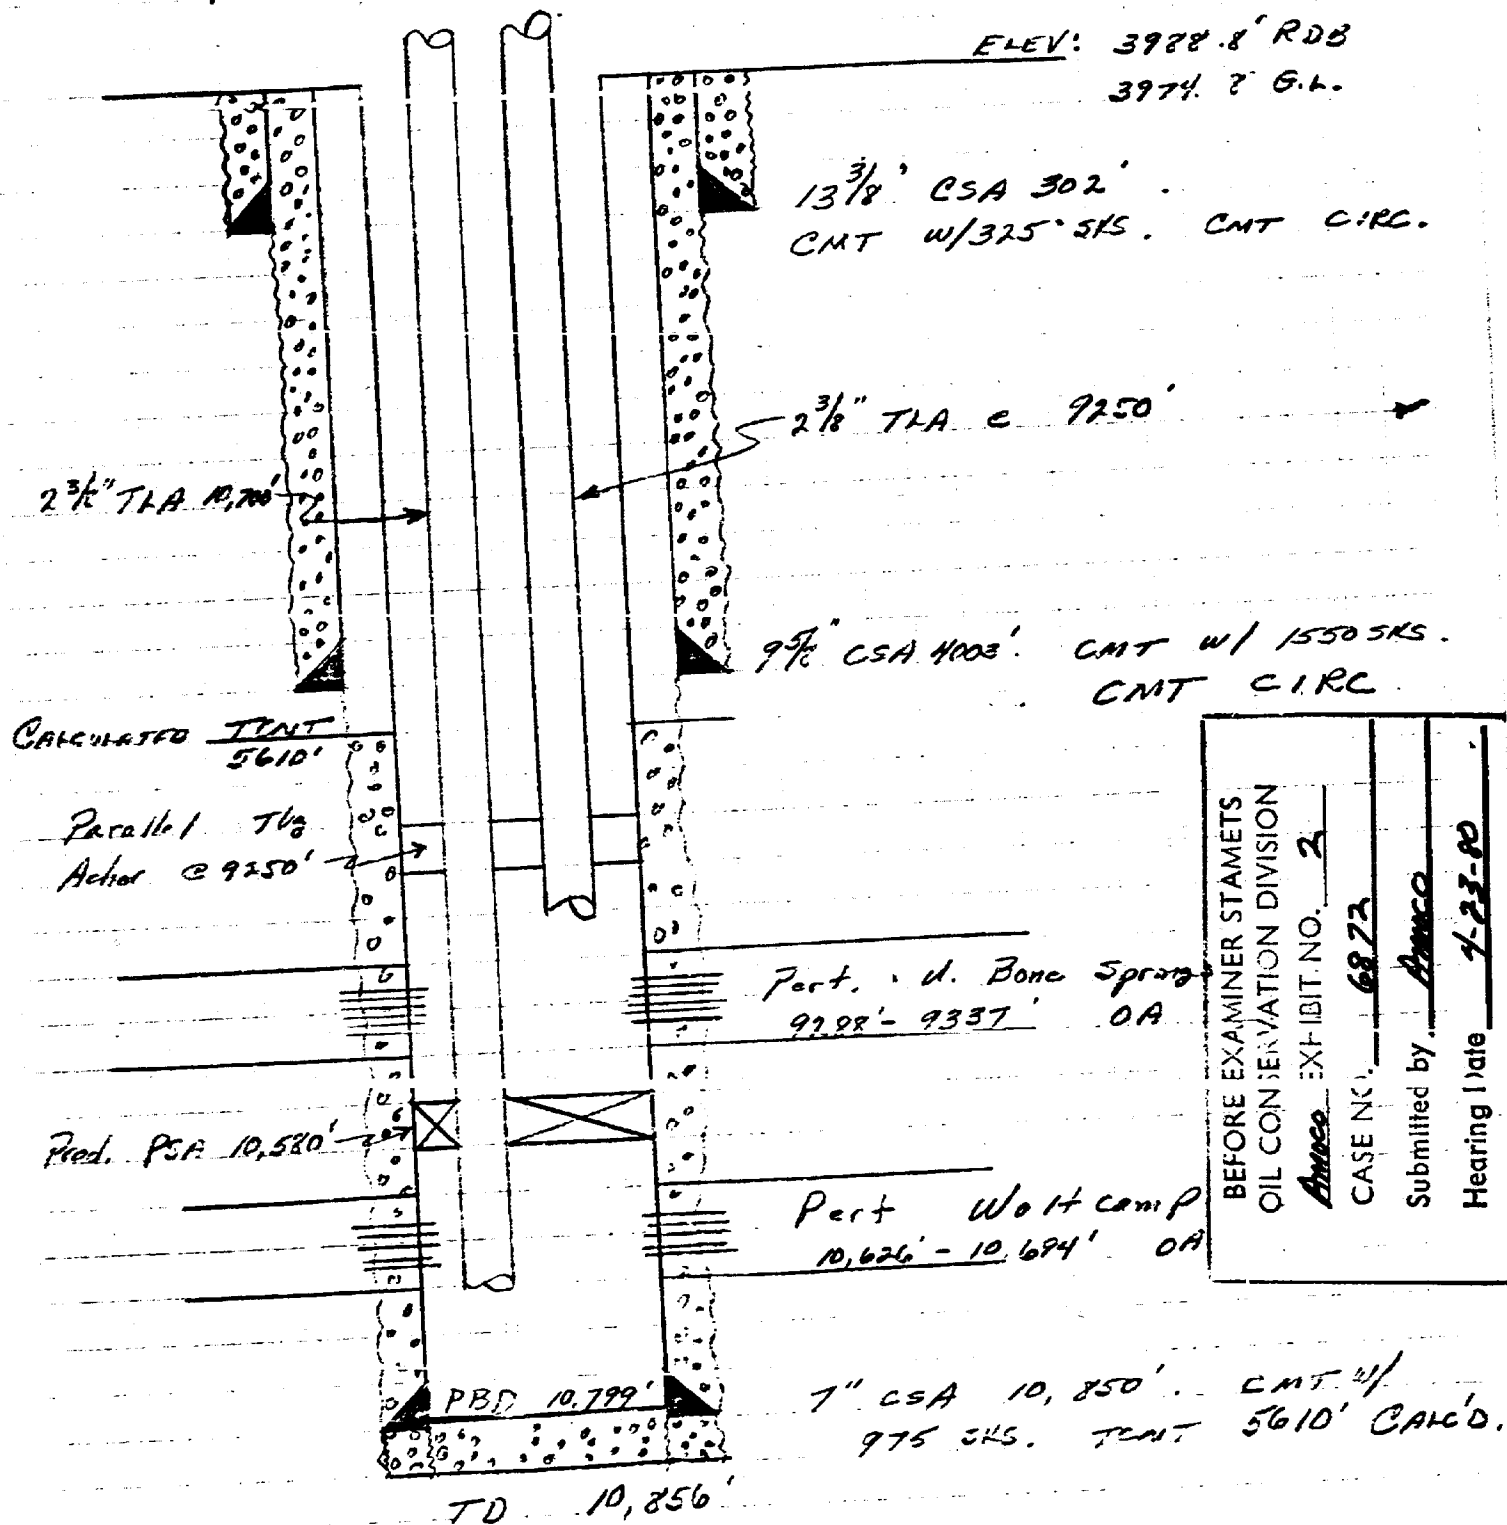 ELEV: 3988.8' RDB
3974. G.L.
13 3/8" CSA 302'.
CMT W/325 SKS. CMT CIRC.
2 3/8" TLA @ 9250'
2 3/8" TLA 10,700'
9 5/8" CSA 4003'. CMT W/ 1550 SKS.
CMT CIRC
CALCULATED TCMT
5610'
Parallel Tbg
Achor @ 9250'
Perf. U. Bone Springs
9298'-9337' OA
Prod. PSA 10,580'
Perf Wolfcamp
10,626'-10,694' OA
PBD 10,799'
7" CSA 10,850'. CMT W/
975 SKS. TCMT 5610' CALC'D.
TD 10,856'
BEFORE EXAMINER STAMETS
OIL CONSERVATION DIVISION
Amoco EXHIBIT NO. 2
CASE NO. 6872
Submitted by Amoco
Hearing Date 4-23-80